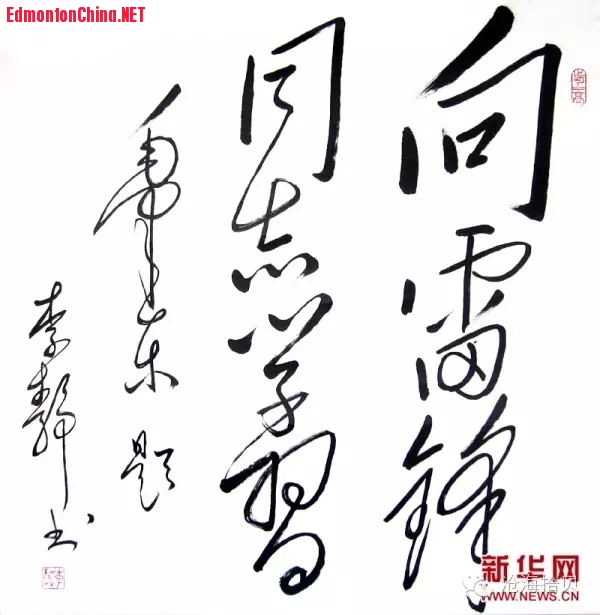 EdmontonChina.NET
向雷锋
同志学习
毛泽东 题
李静书
新华网
WWW.NEWS.CN
沧海拾贝